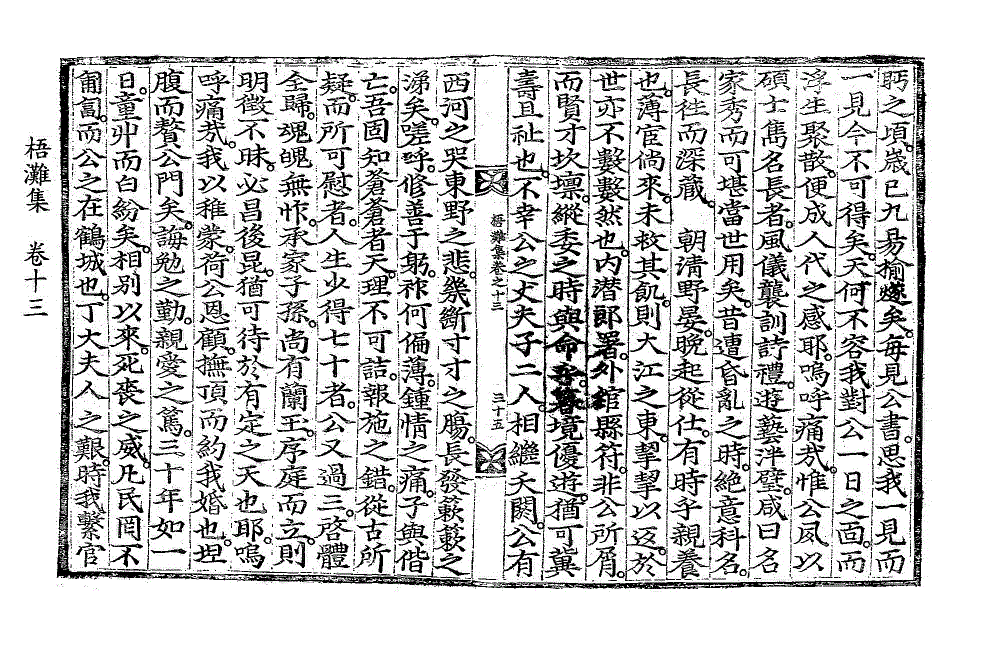 眄之頃歲已九易榆燧矣每見公書思我一見而
一見今不可得矣天何不容我對公一日之面而
浮生聚散便成人代之感耶嗚呼痛哉惟公夙以
碩士雋名長者風儀襲訓詩禮遊藝泮璧咸曰名
家秀而可堪當世用矣昔遭昏亂之時絶意科名
長往而深藏 朝淸野晏晩起從仕有時乎親養
也薄宦倘來未救其飢則大江之東挈挈以返於
世亦不數數然也內潛郎署外綰縣符非公所屑
而賢才坎壈縱委之時與命暮境優遊猶可冀
壽且祉也不幸公之丈夫子二人相繼夭閼公有
梧灘集卷之十三 三十五
西河之哭東野之悲幾斷寸寸之膓長發簌簌之
涕矣嗟呼修善于躬祚何偏薄鍾情之痛子與偕
亡吾固知蒼蒼者天理不可詰報施之錯從古所
疑而所可慰者人生少得七十者公又過三啓體
全歸魂魄無怍承家子孫尙有蘭玉序庭而立則
明徵不昧必昌後昆猶可待於有定之天也耶嗚
呼痛哉我以稚蒙荷公恩顧撫頂而約我婚也坦
腹而贅公門矣誨勉之勤親愛之篤三十年如一
日童丱而白紛矣相別以來死喪之威凡民罔不
匍匐而公之在鶴城也丁大夫人之艱時我繫官
梧灘集 卷十三